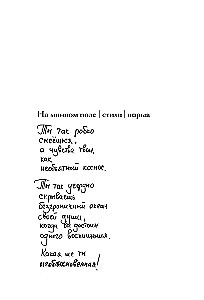 На минном поле | стихи | парня
Ты так робко
смеёшься,
а чувства твои,
как
необъятный космос.
Ты так усердно
скрываешь
безграничный океан
своей души,
когда ты достойна
одного восхищения.
Какая же ты
необыкновенная!